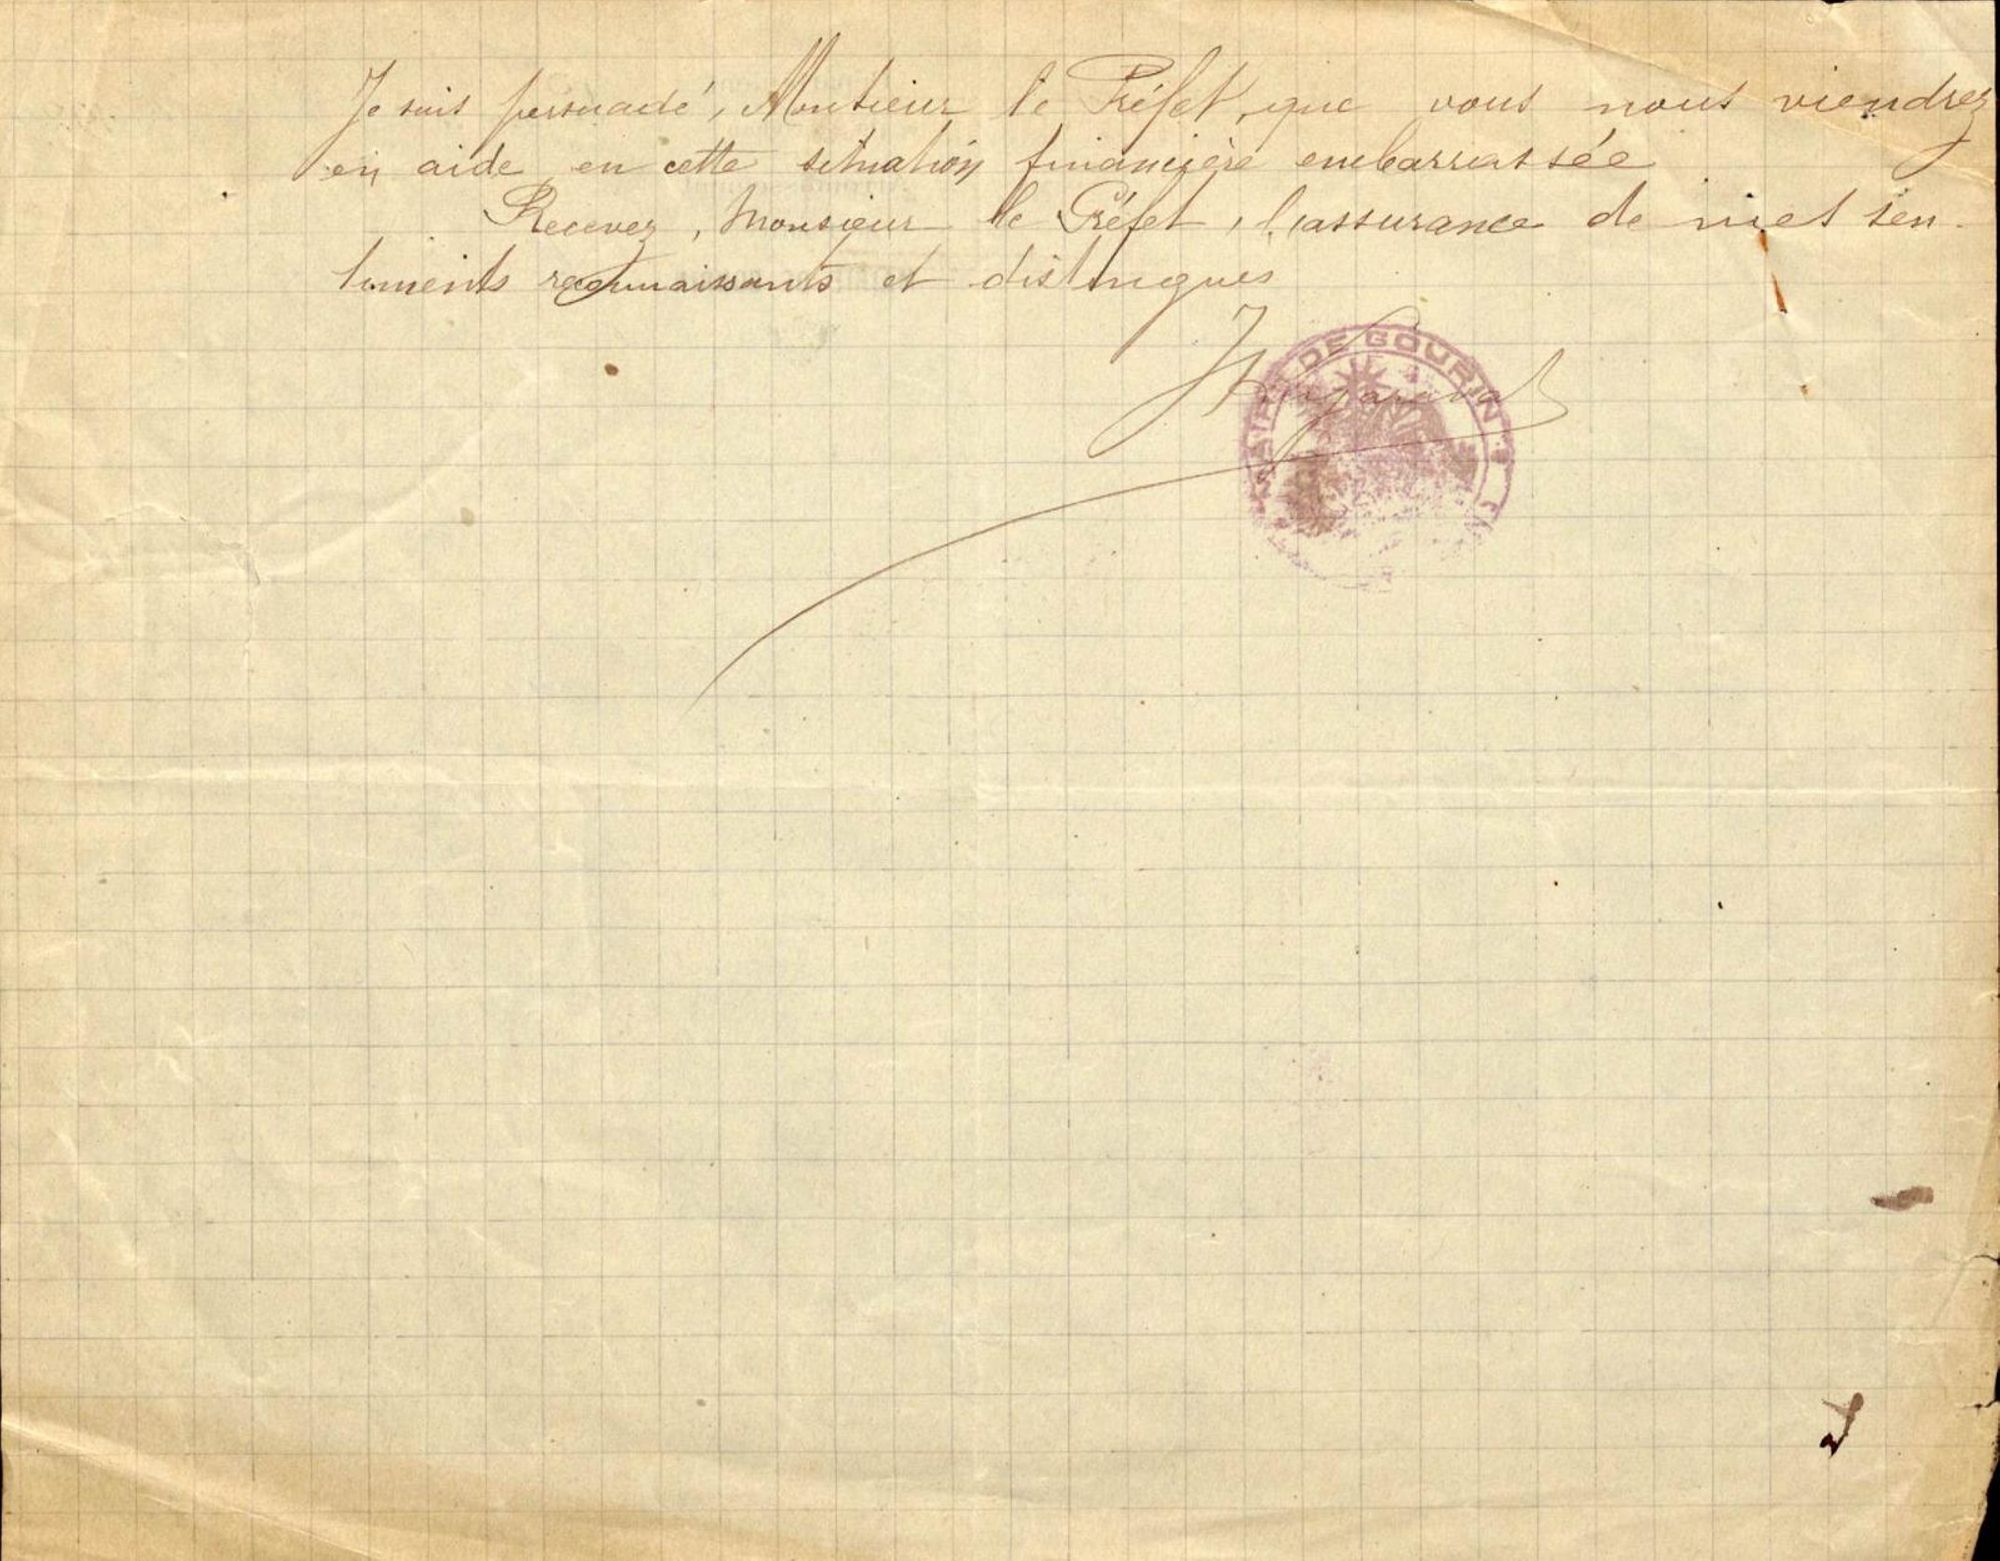 Je suis persuadé, Monsieur le Préfet, que vous nous viendrez
en aide en cette situation financière embarrassée
Recevez, Monsieur le Préfet, l'assurance de mes sen-
timents reconnaissants et distingués
MAIRIE DE GOURIN